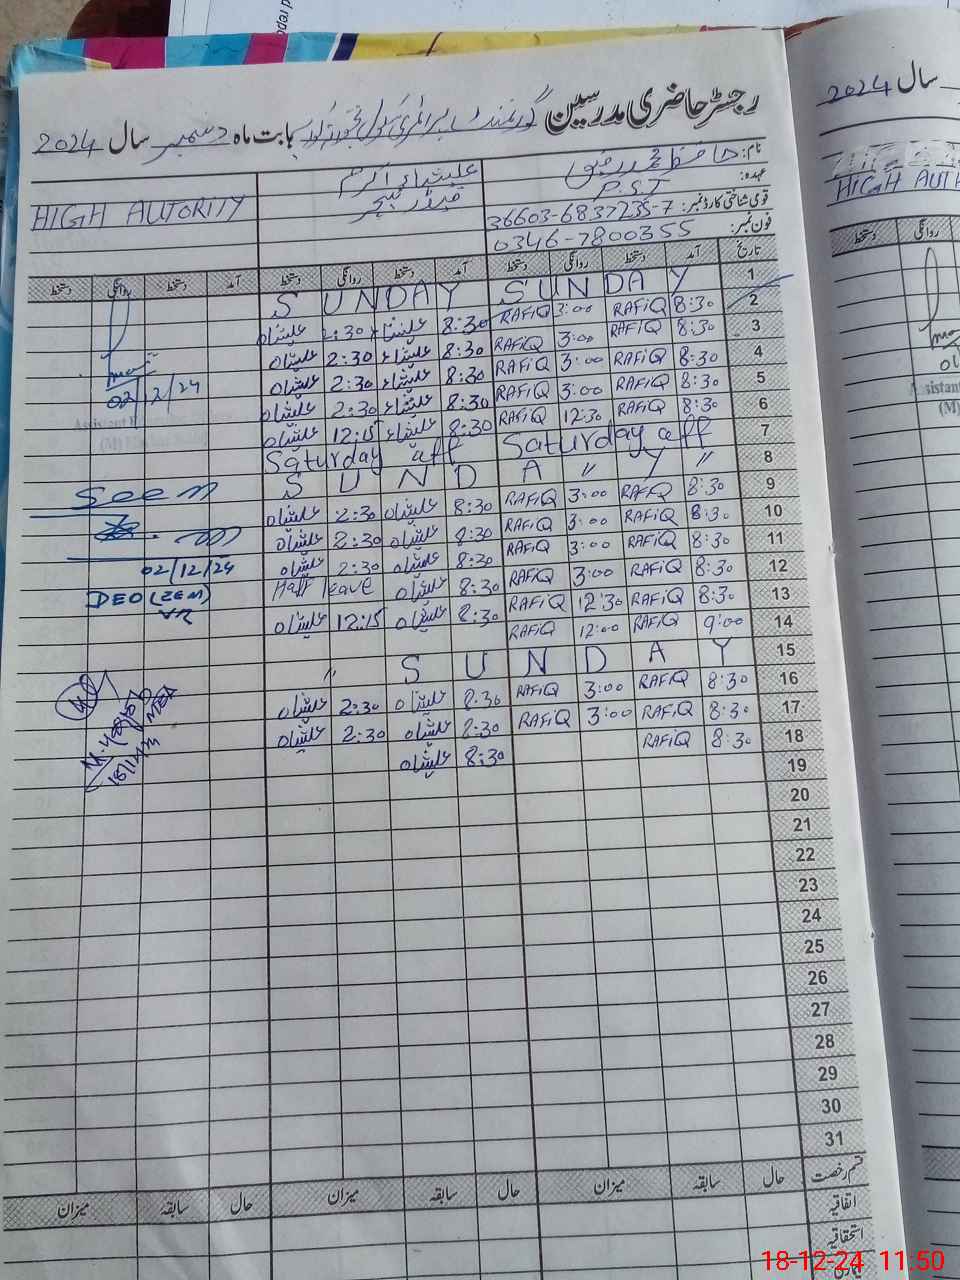 رجسٹر حاضری مدرسین گورنمنٹ پرائمری سکول بابت ماہ دسمبر سال 2024
نام: حافظ محمد رفیق
عہدہ: P.S.T
قومی شناختی کارڈ نمبر: 36603-6837235-7
فون نمبر: 0346-7800355
علیشاہ اکرم
HIGH AUTORITY
تاریخ آمد دستخط روانگی دستخط آمد دستخط روانگی دستخط آمد دستخط روانگی دستخط
1 SUNDAY SUNDAY
2 8:30 RAFIQ 3:00 RAFIQ 8:30 علیشاہ 2:30 علیشاہ
3 8:30 RAFIQ 3:00 RAFIQ 8:30 علیشاہ 2:30 علیشاہ
4 8:30 RAFIQ 3:00 RAFIQ 8:30 علیشاہ 2:30 علیشاہ
5 8:30 RAFIQ 3:00 RAFIQ 8:30 علیشاہ 2:30 علیشاہ
6 8:30 RAFIQ 12:30 RAFIQ 8:30 علیشاہ 12:15 علیشاہ
7 Saturday off Saturday off
8 SUNDAY " "
9 8:30 RAFIQ 3:00 RAFIQ 8:30 علیشاہ 2:30 علیشاہ
10 8:30 RAFIQ 3:00 RAFIQ 8:30 علیشاہ 2:30 علیشاہ
11 8:30 RAFIQ 3:00 RAFIQ 8:30 علیشاہ 2:30 علیشاہ
12 8:30 RAFIQ 3:00 RAFIQ 8:30 علیشاہ Half leave
13 8:30 RAFIQ 12:30 RAFIQ 8:30 علیشاہ 12:15 علیشاہ
14 9:00 RAFIQ 12:00 RAFIQ
15 SUNDAY "
16 8:30 RAFIQ 3:00 RAFIQ 8:30 علیشاہ 2:30 علیشاہ
17 8:30 RAFIQ 3:00 RAFIQ 8:30 علیشاہ 2:30 علیشاہ
18 8:30 RAFIQ 8:30 علیشاہ
19
20
21
22
23
24
25
26
27
28
29
30
31
02/12/24
Seen
02/12/24
DEO (SEM)
MEA
قسم رخصت حال سابقہ میزان حال سابقہ میزان حال سابقہ میزان
اتفاقیہ
استحقاقیہ
سال 2024
روانگی دستخط
Assistant
(M)
18-12-24 11:50